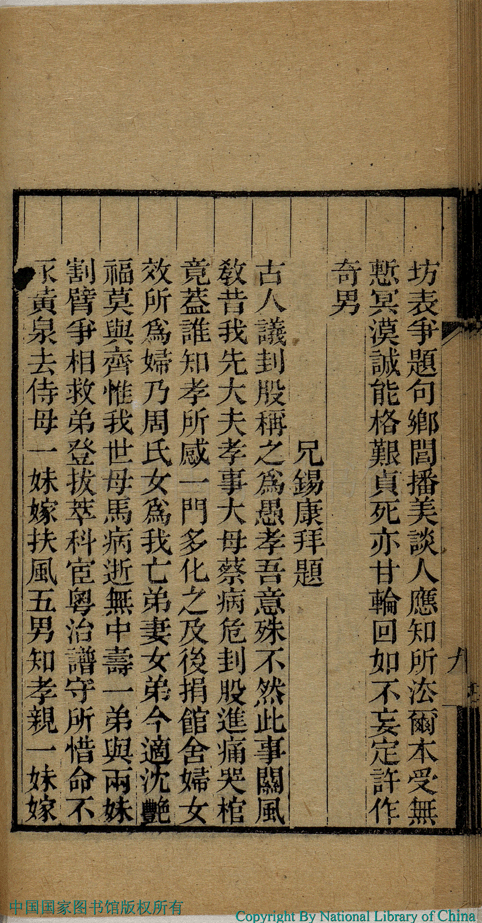 坊表爭題句鄉閭播美談人應知所法爾本受無
慙冥漠誠能格艱貞死亦甘輪回如不妄定許作
奇男
兄錫康拜題
古人議刲股稱之爲愚孝吾意殊不然此事關風
教昔我先大夫孝事大母蔡病危刲股進痛哭棺
竟蓋誰知孝所感一門多化之及後捐館舍婦女
效所爲婦乃周氏女爲我亡弟妻女弟今適沈艷
福莫與齊惟我世母馬病逝無中壽一弟與兩妹
割臂爭相救弟登拔萃科宦粵治譜守所惜命不
永黃泉去侍母一妹嫁扶風五男知孝親一妹嫁
九
中国国家图书馆版权所有
Copyright By National Library of China